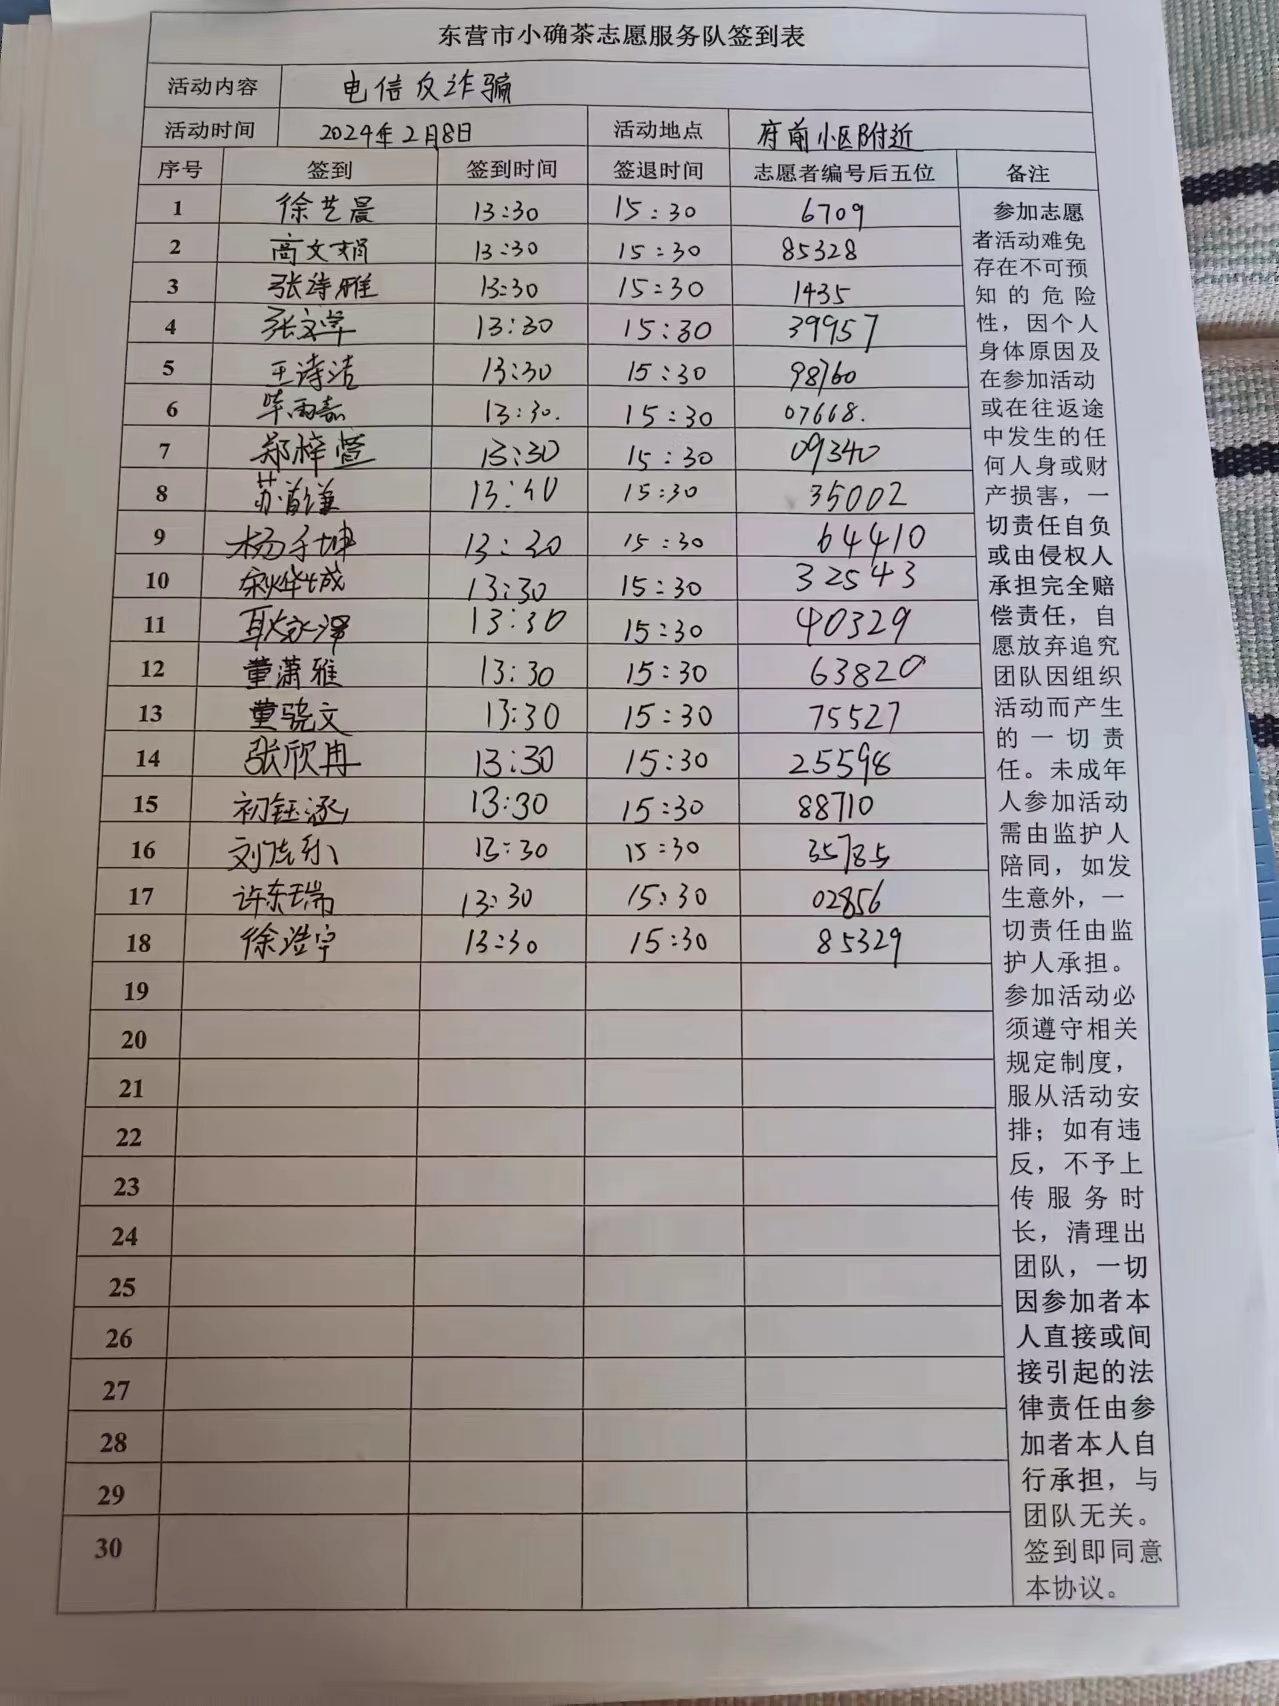 东营市小确茶志愿服务队签到表
活动内容 电信反诈骗
活动时间 2024年2月8日 活动地点 府前小区附近
序号 签到 签到时间 签退时间 志愿者编号后五位 备注
1 徐艺晨 13:30 15:30 6709
2 高文娟 13:30 15:30 85328
3 张诗雅 13:30 15:30 1435
4 张文学 13:30 15:30 39957
5 王诗洁 13:30 15:30 98760
6 毕雨嘉 13:30. 15:30 07668.
7 郑梓萱 13:30 15:30 09340
8 15:30 35002
9 杨子坤 13:30 15:30 64410
10 13:30 15:30 32543
11 耿永泽 13:30 15:30 40329
12 董潇雅 13:30 15:30 63820
13 董骁文 13:30 15:30 75527
14 张欣冉 13:30 15:30 25598
15 初钰涵 13:30 15:30 88710
16 13:30 15:30 35785
17 许东瑞 13:30 15:30 02856
18 徐澄宇 13:30 15:30 85329
19
20
21
22
23
24
25
26
27
28
29
30
参加志愿
者活动难免
存在不可预
知的危险
性，因个人
身体原因及
在参加活动
或在往返途
中发生的任
何人身或财
产损害，一
切责任自负
或由侵权人
承担完全赔
偿责任，自
愿放弃追究
团队因组织
活动而产生
的一切责
任。未成年
人参加活动
需由监护人
陪同，如发
生意外，一
切责任由监
护人承担。
参加活动必
须遵守相关
规定制度，
服从活动安
排；如有违
反，不予上
传服务时
长，清理出
团队，一切
因参加者本
人直接或间
接引起的法
律责任由参
加者本人自
行承担，与
团队无关。
签到即同意
本协议。